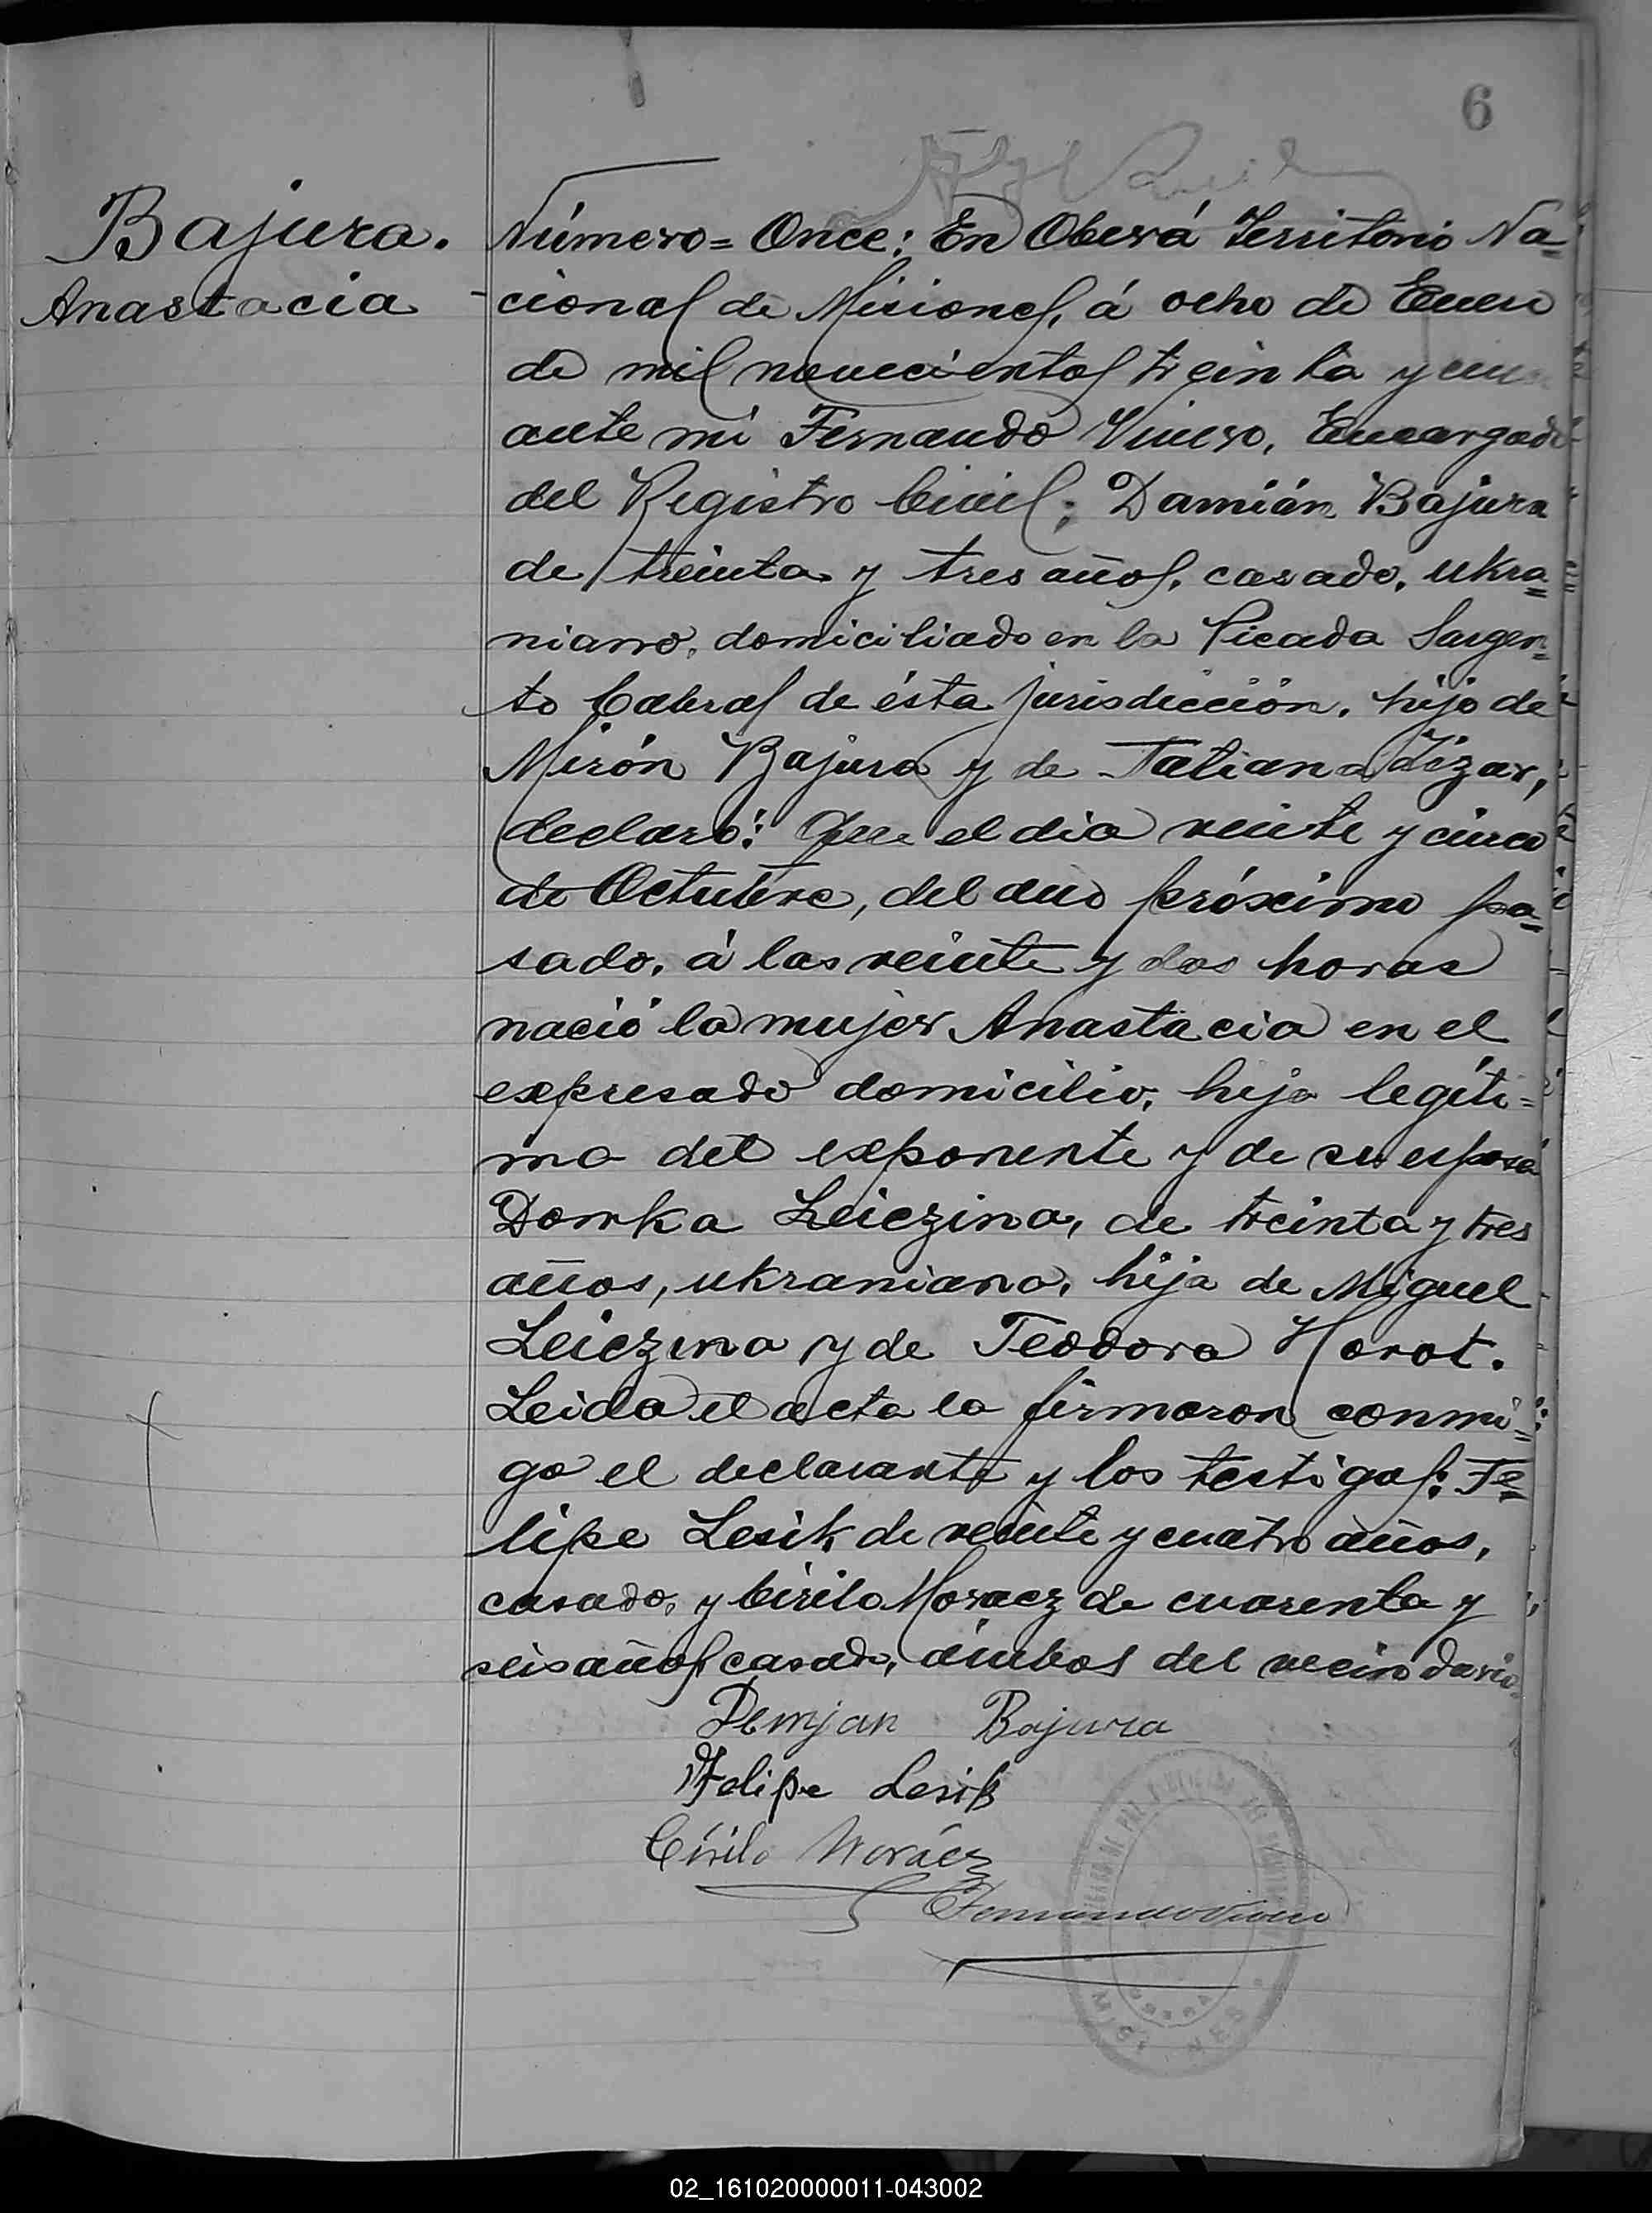 6
Bajura.
Anastacia
Número = Once: En Oberá Territorio Na=
cional de Misiones, á ocho de Enero
de mil novecientos treinta y
ante mi Fernando Encargado
del Registro Civil; Damián Bajura
de treinta y tres años, casado, ukra=
niano, domiciliado en la Picada Sargen=
to Cabral de ésta jurisdicción, hijo de
Mirón Bajura y de Tatiana
declaró: Que el dia veinte y cinco
de Octubre, del año próximo pa=
sado, á las veinte y dos horas
nació la mujer Anastacia en el
expresado domicilio, hija legíti=
ma del exponente y de su esposa
Domka Leiczina, de treinta y tres
años, ukraniana, hija de Miguel
Leiczina y de Teodora Horot.
Leida el acta la firmaron conmi=
go el declarante y los testigos: Fe=
lipe Lesik de veinte y cuatro años,
casado, y Cirilo Moracz de cuarenta y
seis años casado, ámbos del vecindario
Demjan Bajura
Felipe Lesik
Cirilo
MISIONES
02_161020000011-043002